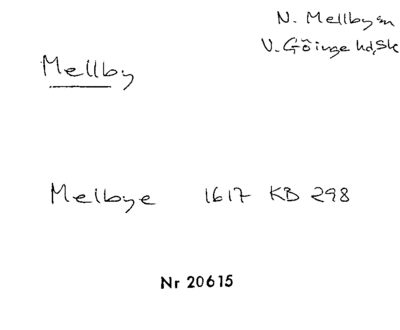 N. Mellby sn
V. Göinge hd, Sk
Mellby
Melbye 1617 KB 298
Nr 20615